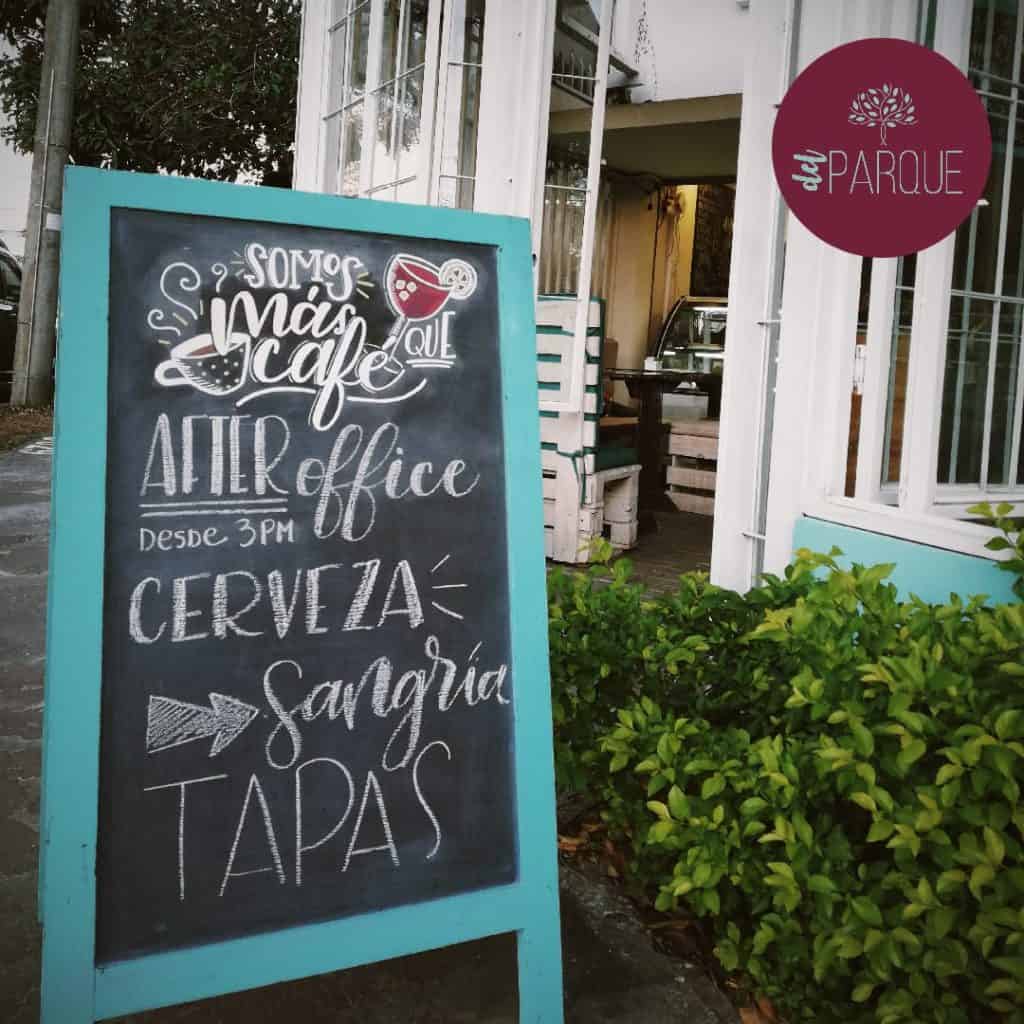 del PARQUE
SOMOS
más QUE
café
AFTER office
DESDE 3PM
CERVEZA
Sangría
TAPAS